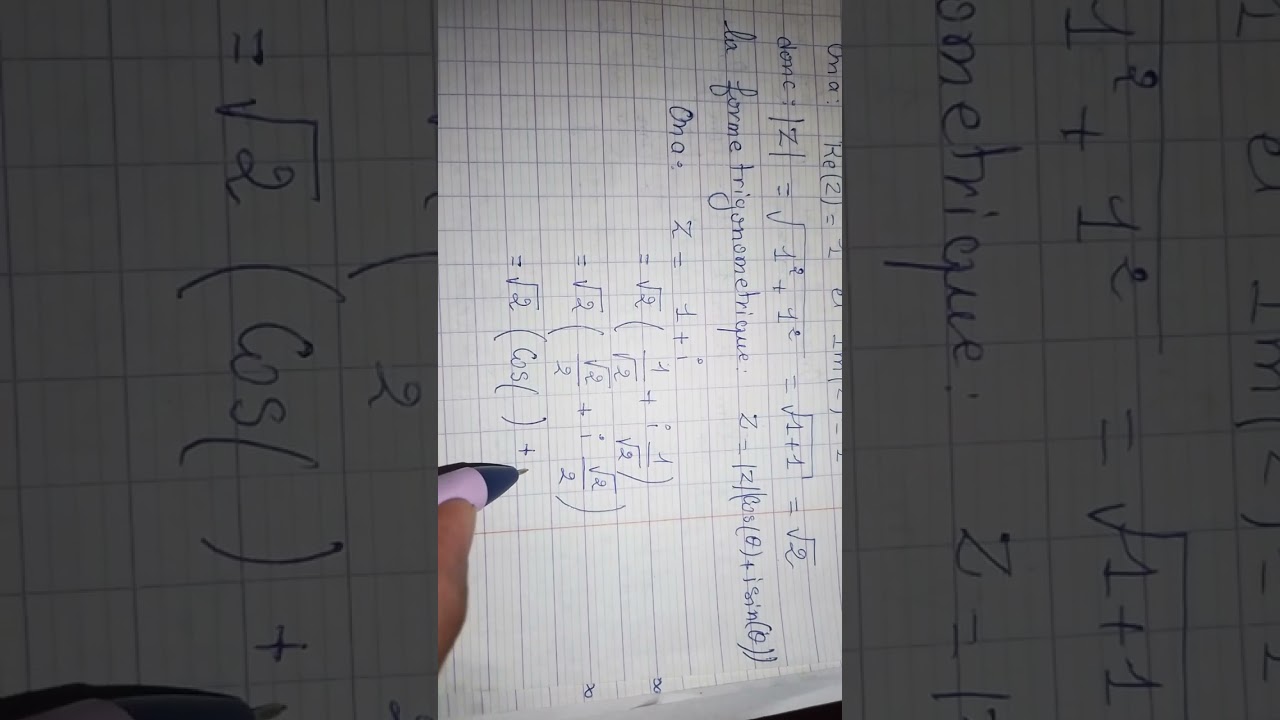 Ona: Re(Z) = 1 et Im(Z) = 1
donc: |Z| = √1² + 1² = √1+1 = √2
la forme trigonometrique: Z = |Z|(cos(θ) + i sin(θ))
Ona: Z = 1 + i
= √2 ( 1/√2 + i 1/√2 )
= √2 ( √2/2 + i √2/2 )
= √2 ( Cos( ) +